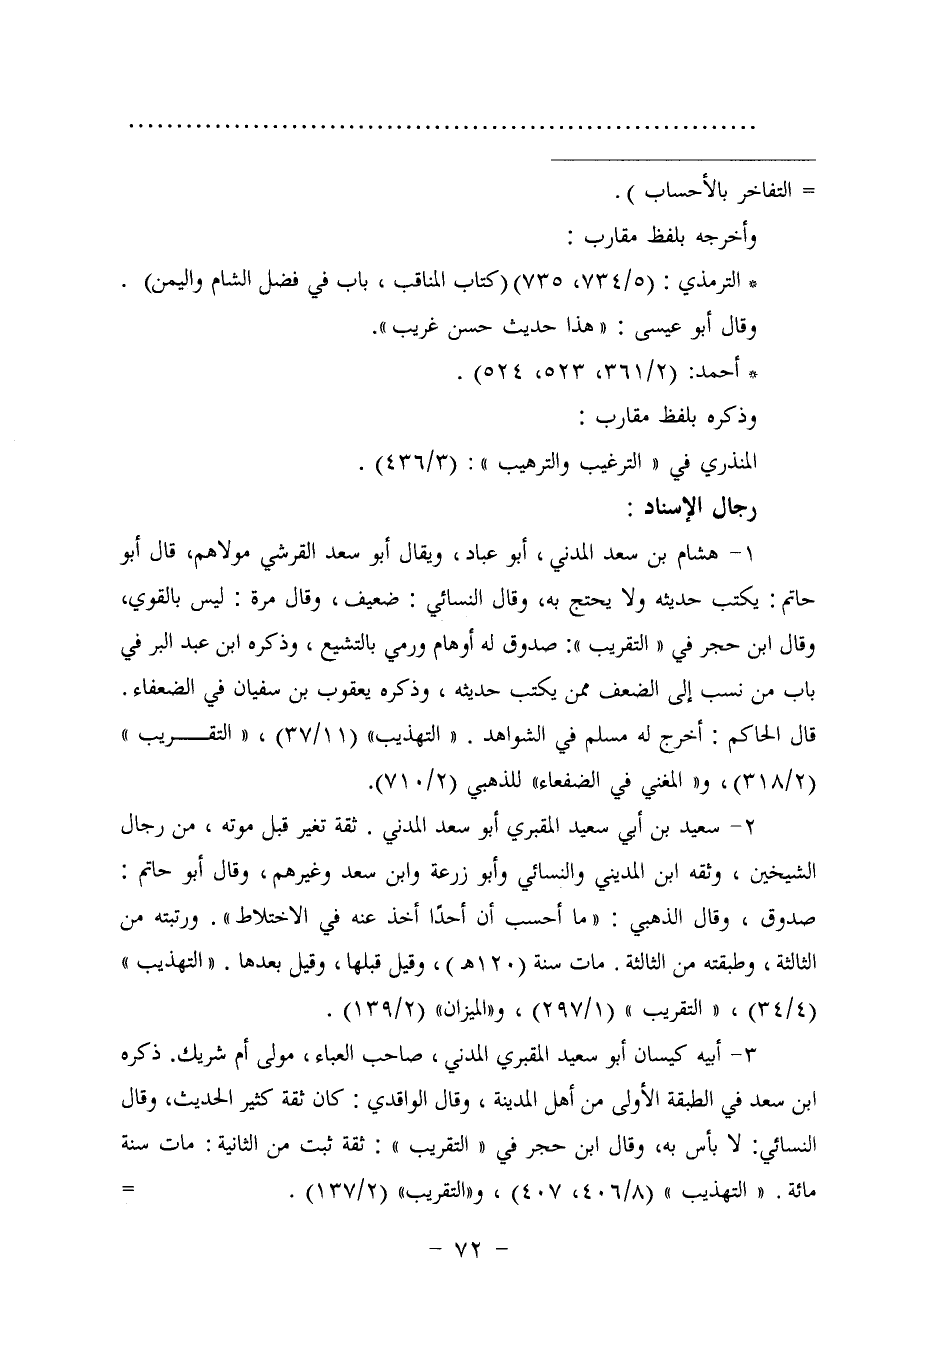 ..............................................................
= التفاخر بالأحساب ) .
وأخرجه بلفظ مقارب :
* الترمذي : (٧٣٤/٥، ٧٣٥) (كتاب المناقب ، باب في فضل الشام واليمن) .
وقال أبو عيسى : « هذا حديث حسن غريب ».
* أحمد: (٣٦١/٢، ٥٢٣، ٥٢٤) .
وذكره بلفظ مقارب :
المنذري في « الترغيب والترهيب » : (٤٣٦/٣) .
رجال الإسناد :
١- هشام بن سعد المدني ، أبو عباد ، ويقال أبو سعد القرشي مولاهم، قال أبو
حاتم : يكتب حديثه ولا يحتج به، وقال النسائي : ضعيف ، وقال مرة : ليس بالقوي،
وقال ابن حجر في « التقريب »: صدوق له أوهام ورمي بالتشيع ، وذكره ابن عبد البر في
باب من نسب إلى الضعف ممن يكتب حديثه ، وذكره يعقوب بن سفيان في الضعفاء .
قال الحاكم : أخرج له مسلم في الشواهد . « التهذيب» (٣٧/١١) ، « التقـــريب »
(٣١٨/٢) ، و« المغني في الضفعاء» للذهبي (٧١٠/٢).
٢- سعيد بن أبي سعيد المقبري أبو سعد المدني . ثقة تغير قبل موته ، من رجال
الشيخين ، وثقه ابن المديني والنسائي وأبو زرعة وابن سعد وغيرهم ، وقال أبو حاتم :
صدوق ، وقال الذهبي : « ما أحسب أن أحدًا أخذ عنه في الاختلاط» . ورتبته من
الثالثة ، وطبقته من الثالثة . مات سنة (١٢٠هـ) ، وقيل قبلها ، وقيل بعدها . « التهذيب »
(٣٤/٤) ، « التقريب » (٢٩٧/١) ، و«الميزان» (١٣٩/٢) .
٣- أبيه كيسان أبو سعيد المقبري المدني ، صاحب العباء ، مولى أم شريك. ذكره
ابن سعد في الطبقة الأولى من أهل المدينة ، وقال الواقدي : كان ثقة كثير الحديث، وقال
النسائي: لا بأس به، وقال ابن حجر في « التقريب » : ثقة ثبت من الثانية : مات سنة
مائة . « التهذيب » (٤٠٦/٨، ٤٠٧) ، و«التقريب» (١٣٧/٢) . =
- ٧٢ -